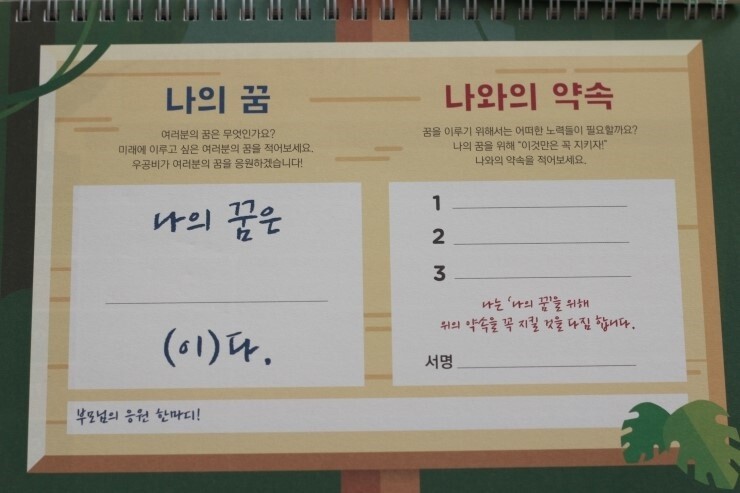 나의 꿈
여러분의 꿈은 무엇인가요?
미래에 이루고 싶은 여러분의 꿈을 적어보세요.
우공비가 여러분의 꿈을 응원하겠습니다!
나의 꿈은
(이)다.
나와의 약속
꿈을 이루기 위해서는 어떠한 노력들이 필요할까요?
나의 꿈을 위해 "이것만은 꼭 지키자!"
나와의 약속을 적어보세요.
1
2
3
나는 '나의 꿈'을 위해
위의 약속을 꼭 지킬 것을 다짐 합니다.
서명
부모님의 응원 한마디!